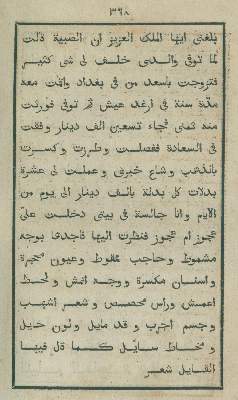 ٣٦٨
بلغنى ايها الملك العزيز ان الصبية قالت
لما توفى والدى خلف لى شى كثير
فتزوجت باسعد من فى بغداد واقمت معه
مدّة سنة فى ارغد عيش ثم توفى فورثت
منه ثمنى فجاء تسعين الف دينار وفقت
فى السعادة ففصلت وطرزت وكسرت
بالذهب وشاع خبرى وعملت لى عشرة
بدلات كل بدلة بالف دينار الى يوم من
الايام وانا جالسة فى بيتى دخلت علىّ
عجوز ام عجوز فنظرت اليها فاجدها بوجه
مشموط وحاجب ممقوط وعيون مجمرة
واسنان مكسرة ووجه انمش ولحظ
اعمش وراس مجصص وشعر اشهب
وجسم اجرب وقد مايل ولون حايل
ومخاط سايل كما قال فيها
القايل شعر